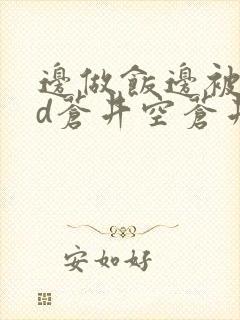 邊做飯邊被
d蒼井空蒼井
安如好